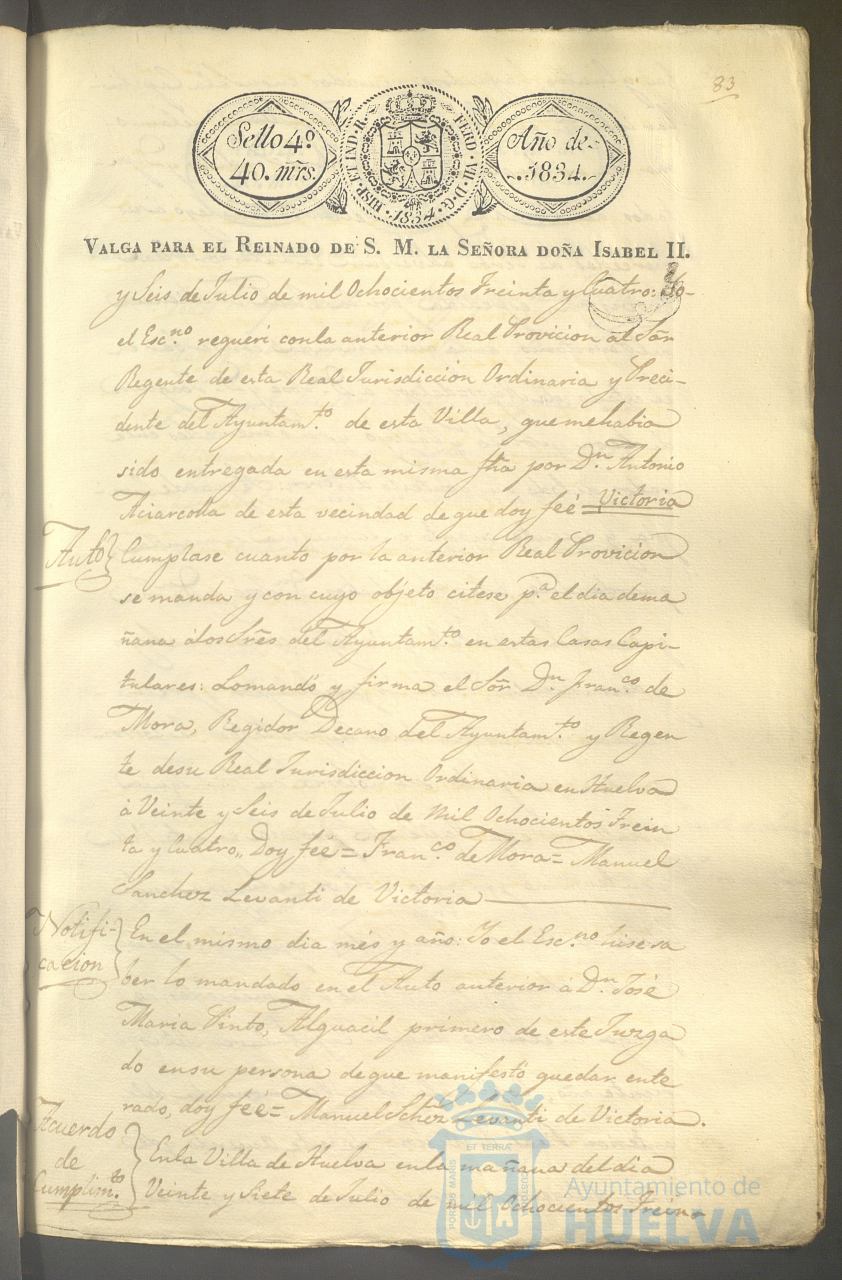 83
Sello 4º
40. mrs.
HISP. ET IND. R.
FERD. VII. D. G.
1834
Año de
1834.
VALGA PARA EL REINADO DE S. M. LA SEÑORA DOÑA ISABEL II.
y Seis de Julio de mil Ochocientos Treinta y Cuatro: Yo
el Escno requeri con la anterior Real Provicion al Sor
Regente de esta Real Jurisdiccion Ordinaria y Preci-
dente del Ayuntamto. de esta Villa, que me habia
sido entregada en esta misma fha por Dn. Antonio
de esta vecindad de que doy feé = Victoria
Auto
Cumplase cuanto por la anterior Real Provicion
se manda y con cuyo objeto citese pa. el dia de ma
ñana á los Sres del Ayuntamto. en estas Casas Capi-
tulares: Lo mandó y firma el Sor Dn. Franco. de
Mora, Regidor Decano del Ayuntamto. y Regen
te de su Real Jurisdiccion Ordinaria en Huelva
á Veinte y Seis de Julio de Mil Ochocientos Trein
ta y Cuatro,, Doy feé = Franco. de Mora = Manuel
Sanchez Levanti de Victoria
Notifi-
cacion
En el mismo dia més y año: Yo el Escno hise sa
ber lo mandado en el Auto anterior á Dn. José
Maria Pinto, Alguacil primero de este Juzga
do en su persona de que manifestó quedar ente
rado, doy feé = Manuel Schez Levanti de Victoria.
Acuerdo
de
Cumplimto.
En la Villa de Huelva en la mañana del dia
Veinte y Siete de Julio de mil Ochocientos Trein-
PORTUS MARIS
ET TERRÆ
CUSTODIA
Ayuntamiento de
HUELVA